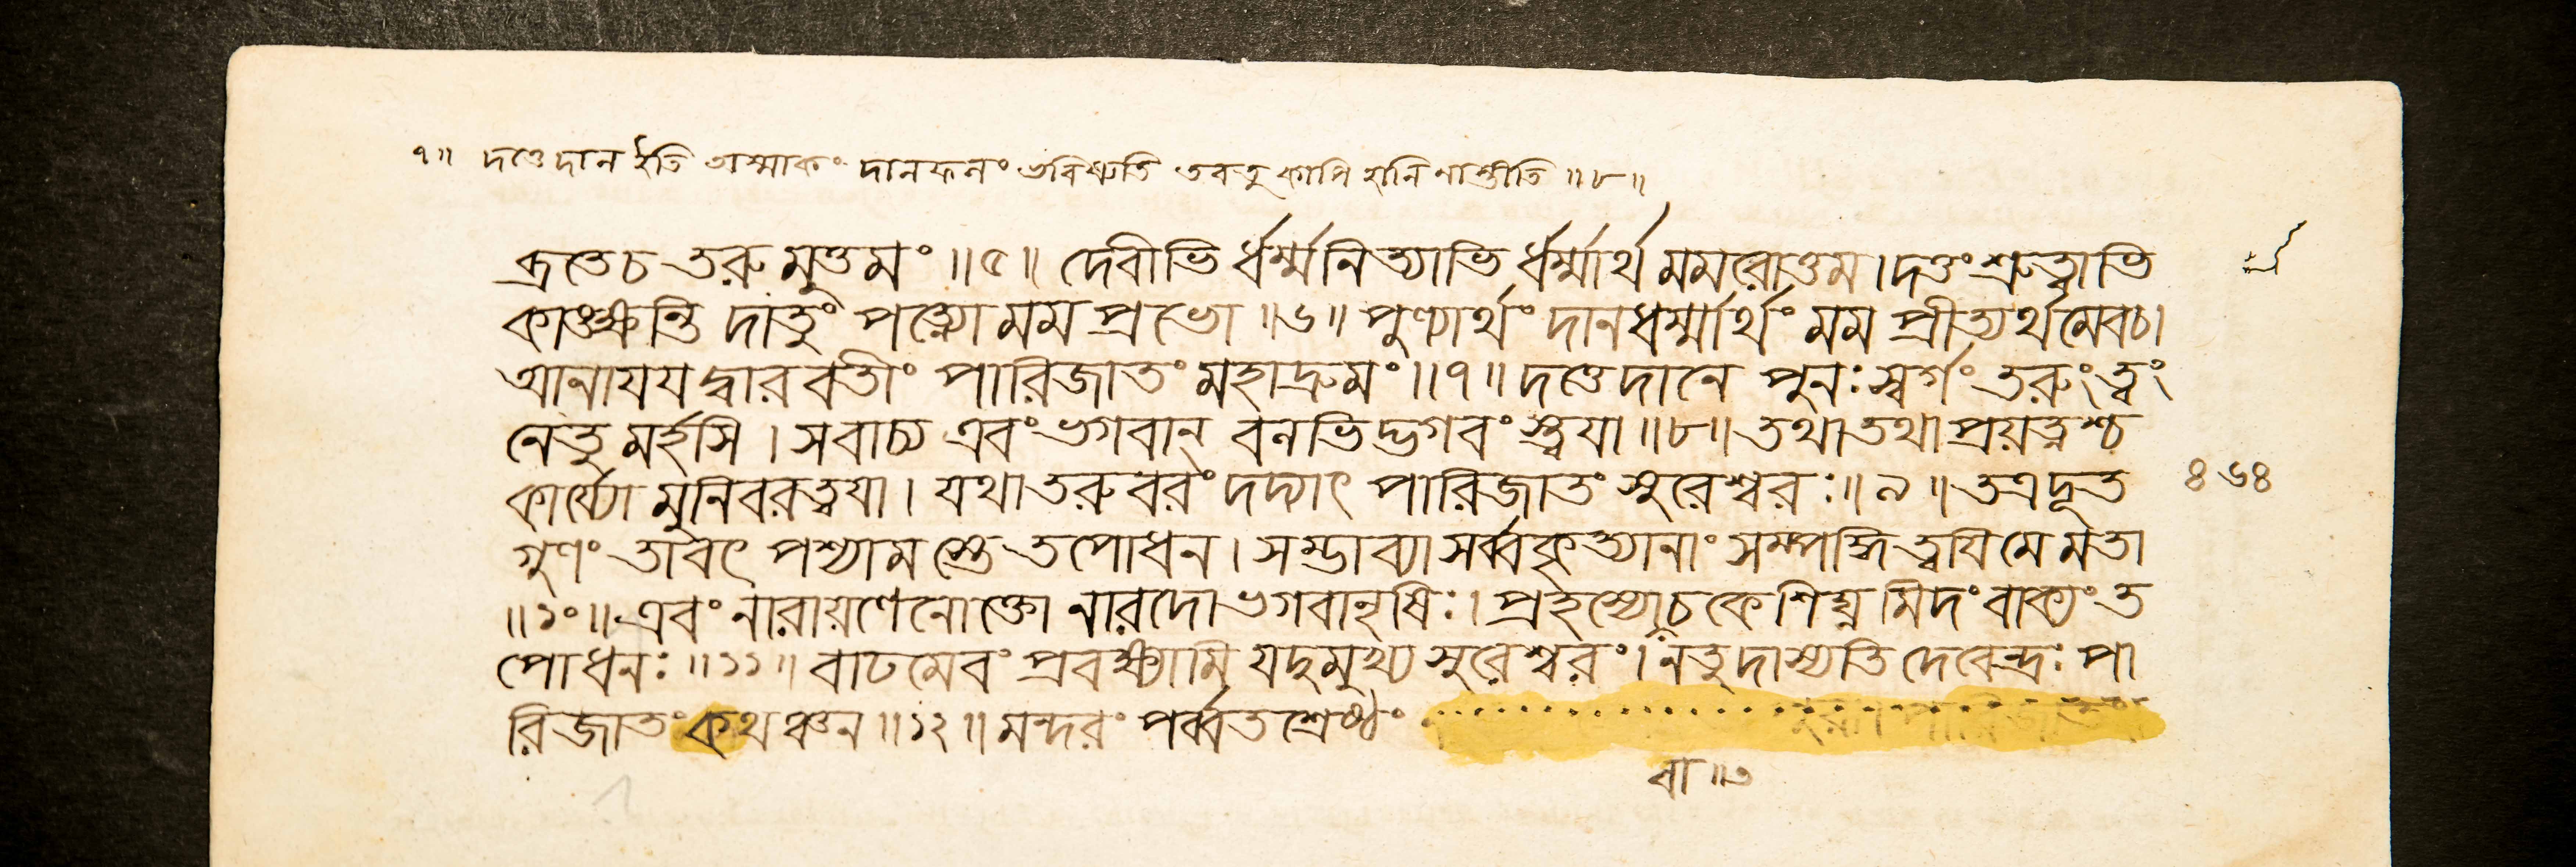 ৭॥ দত্তে দান ইতি অস্মাকং দানফলং ভবিষ্যতি তবতু কাপি হানি র্নাস্তীতি ॥৮॥
ব্রতে চ তরু মুত্তমং ॥৫॥ দেবীভি র্ধর্ম্মনিত্যাভি র্ধর্ম্মার্থ মমরোত্তম। দত্তং শ্রুত্বাভি
কাঙ্ক্ষন্তি দাতুং পত্ন্যো মম প্রভো ॥৬॥ পুণ্যার্থং দানধর্ম্মার্থং মম প্রীত্যর্থমেবচ।
আনাযয দ্বারবতীং পারিজাতং মহাদ্রুমং ॥৭॥ দত্তে দানে পুনঃ স্বর্গং তরুং ত্বং
নেতু মর্হসি। সবাচ্য এবং ভগবান্ বলভিদ্ভগবং স্ত্বযা ॥৮॥ তথা তথা প্রয়ত্নশ্চ
কার্য্যো মুনিবরত্বযা। যথা তরুবরং দদ্যাৎ পারিজাতং সুরেশ্বরঃ ॥৯॥ তত্র দূত
৪৬৪
গুণং তাবৎ পশ্যাম স্তে তপোধন। সম্ভাব্যা সর্ব্বকৃত্যানাং সম্পদ্ধি ত্বযি মে মতা
॥১০॥ এবং নারায়ণেনোক্তো নারদো ভগবানৃষিঃ। প্রহস্যোচ কেশিঘ্ন মিদং বাক্যং ত
পোধনঃ ॥১১॥ বাঢমেবং প্রবক্ষ্যামি যদুমুখ্য সুরেশ্বরং। নতু দাস্যতি দেবেন্দ্রঃ পা
রিজাতং কথঞ্চন ॥১২॥ মন্দরং পর্ব্বতশ্রেষ্ঠং
বা ॥৩